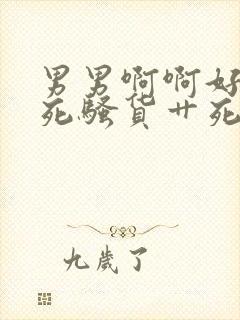 男男啊啊好
死骚货艹死
九歲了